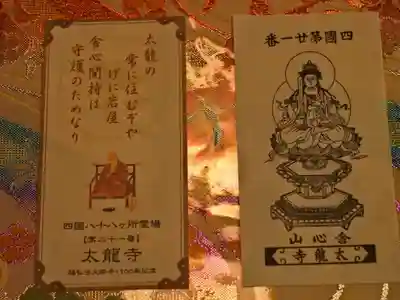 太龍の
常に住むぞや
げに岩屋
舎心聞持は
守護のためなり
四国八十八ヶ所霊場
【第二十一番】
太龍寺
四國第廿一番
舎心山
太龍寺